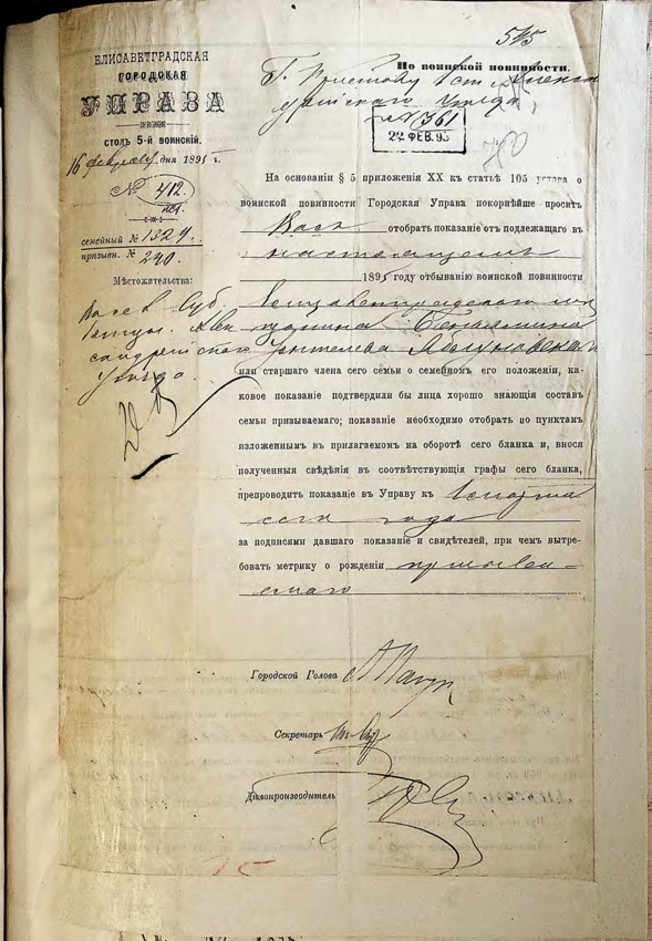 545
ЕЛИСАВЕТГРАДСКАЯ
ГОРОДСКАЯ
УПРАВА
СТОЛЪ 5-й ВОИНСКІЙ.
16 февраля дня 1895 г.
№ 412
семейный № 1329
призывн. № 240
Мѣстожительства:
По воинской повинности.
Г. Приставу 1 ст
уѣзда
№ 1361
22 ФЕВ. 95
На основаніи § 5 приложенія XX къ статьѣ 105 устава о
воинской повинности Городская Управа покорнѣйше проситъ
Васъ отобрать показаніе отъ подлежащаго въ
настоящемъ
1895 году отбыванію воинской повинности
Елисаветградского
щанина Беньямина
или старшаго члена сего семьи о семейномъ его положеніи, ка-
ковое показаніе подтвердили бы лица хорошо знающія составъ
семьи призываемаго; показаніе необходимо отобрать по пунктамъ
изложеннымъ въ прилагаемомъ на оборотѣ сего бланка и, внося
полученныя свѣдѣнія въ соотвѣтствующія графы сего бланка,
препроводить показаніе въ Управу къ 1 марта
сего года
за подписями давшаго показаніе и свидѣтелей, при чемъ вытре-
бовать метрику о рожденіи призывае-
маго
Городской Голова
Секретарь
Дѣлопроизводитель